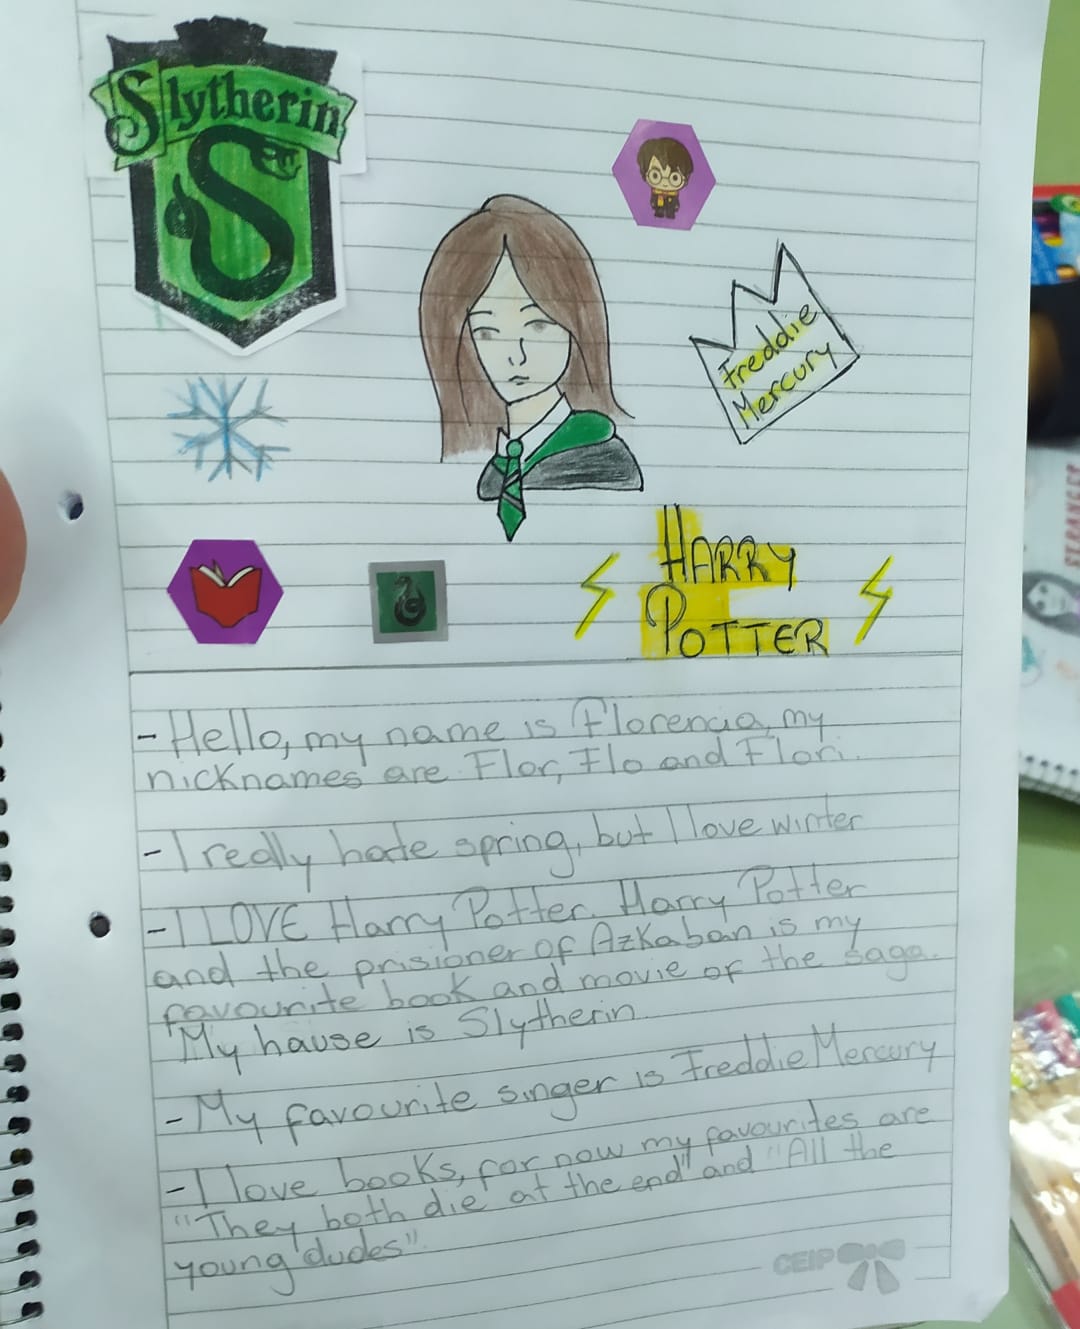 Slytherin
Freddie
Mercury
HARRY
POTTER
- Hello, my name is Florencia, my
nicknames are Flor, Flo and Flori.
- I really hate spring, but I love winter
- I LOVE Harry Potter. Harry Potter
and the prisioner of Azkaban is my
favourite book and movie of the saga.
My hause is Slytherin
- My favourite singer is Freddie Mercury
- I love books, for now my favourites are
"They both die at the end" and "All the
young dudes".
CEIP